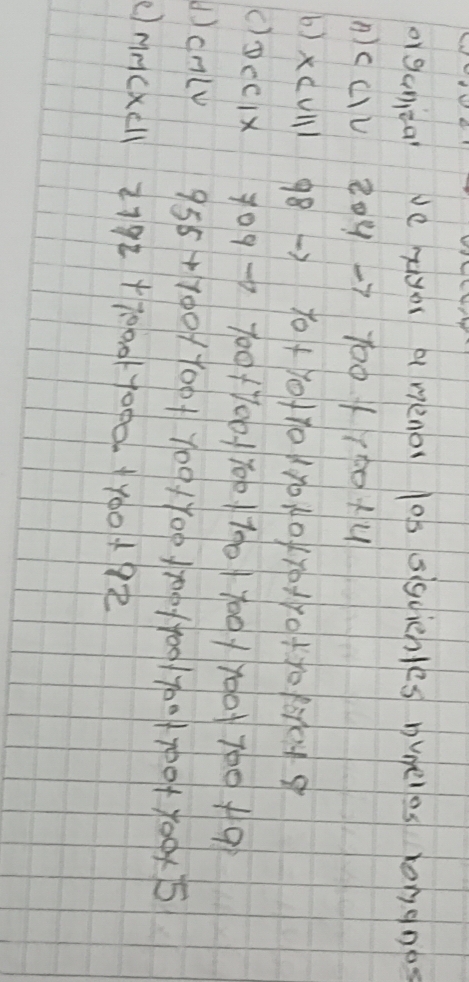 organizar de mayor a menor los siguientes numeros romanos
A) CCIV 204 → 100 + 100 + 4
b) XCVIII 98 → 10 + 10 + 10 + 10 + 10 + 10 + 10 + 10 + 10 + 8
c) DCCIX 709 → 100 + 100 + 100 + 100 + 100 + 100 + 100 + 9
d) CMLV 955 + 100 + 100 + 100 + 100 + 100 + 100 + 100 + 100 + 100 + 5
e) MMCXCII 2192 + 1000 + 1000 + 100 + 92